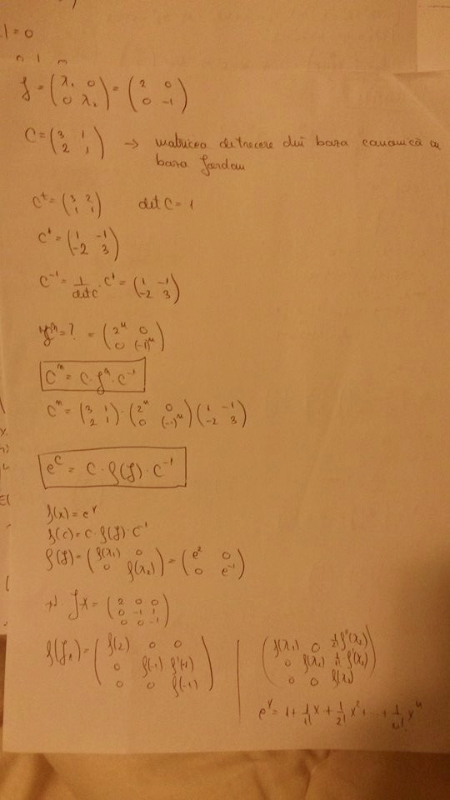 l = 0
J = (λ₁ 0 / 0 λ₂) = (2 0 / 0 -1)
C = (3 1 / 2 1) → matricea de trecere din baza canonică in
baza Jordan
Cᵗ = (3 2 / 1 1) det C = 1
C* = (1 -1 / -2 3)
C⁻¹ = 1/det C · C* = (1 -1 / -2 3)
Jⁿ = ? = (2ⁿ 0 / 0 (-1)ⁿ)
Cⁿ = C · Jⁿ · C⁻¹
Cⁿ = (3 1 / 2 1) · (2ⁿ 0 / 0 (-1)ⁿ) (1 -1 / -2 3)
e^C = C · f(J) · C⁻¹
f(x) = eˣ
f(C) = C · f(J) · C⁻¹
f(J) = (f(λ₁) 0 / 0 f(λ₂)) = (e² 0 / 0 e⁻¹)
J = (2 0 0 / 0 -1 1 / 0 0 -1)
f(J) = (f(2) 0 0 / 0 f(-1) f'(-1) / 0 0 f(-1))
eˣ = 1 + 1/1! x + 1/2! x² + ... + 1/n! xⁿ